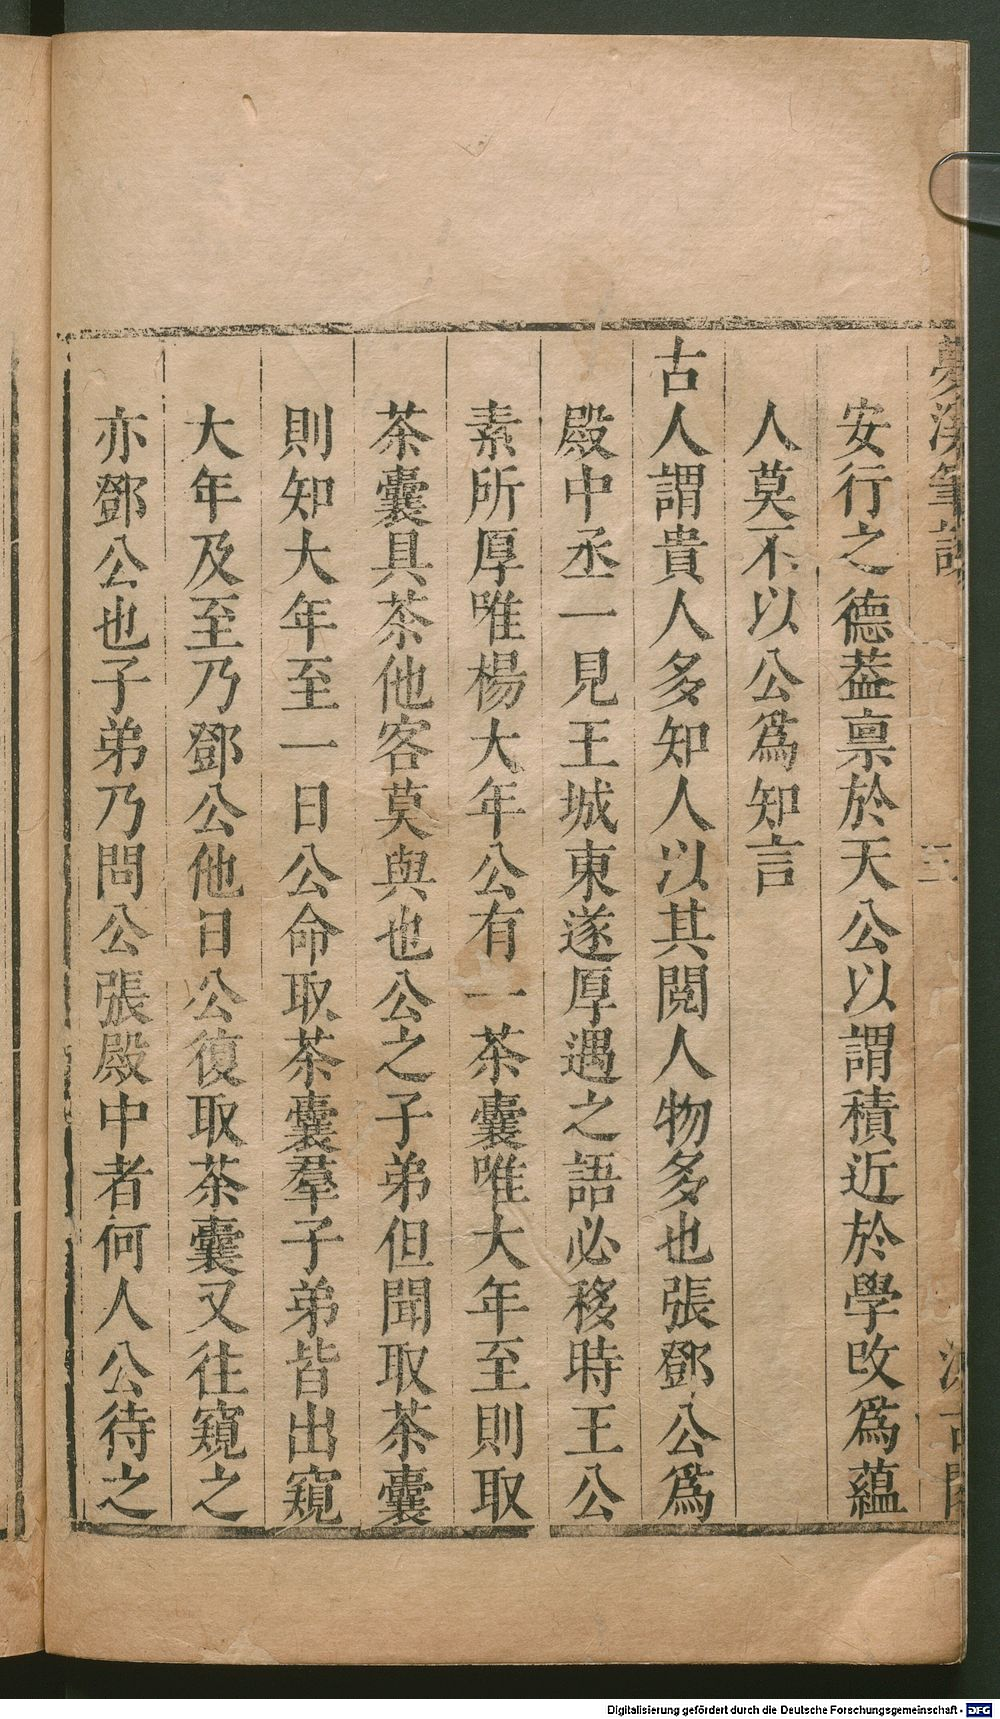 夢溪筆談
安行之德葢稟於天公以謂積近於學改爲蘊
人莫不以公爲知言
古人謂貴人多知人以其閱人物多也張鄧公爲
殿中丞一見王城東遂厚遇之語必移時王公
素所厚唯楊大年公有一茶囊唯大年至則取
茶囊具茶他客莫與也公之子弟但聞取茶囊
則知大年至一日公命取茶囊羣子弟皆出窺
大年及至乃鄧公他日公復取茶囊又往窺之
亦鄧公也子弟乃問公張殿中者何人公待之
Digitalisierung gefördert durch die Deutsche Forschungsgemeinschaft - DFG